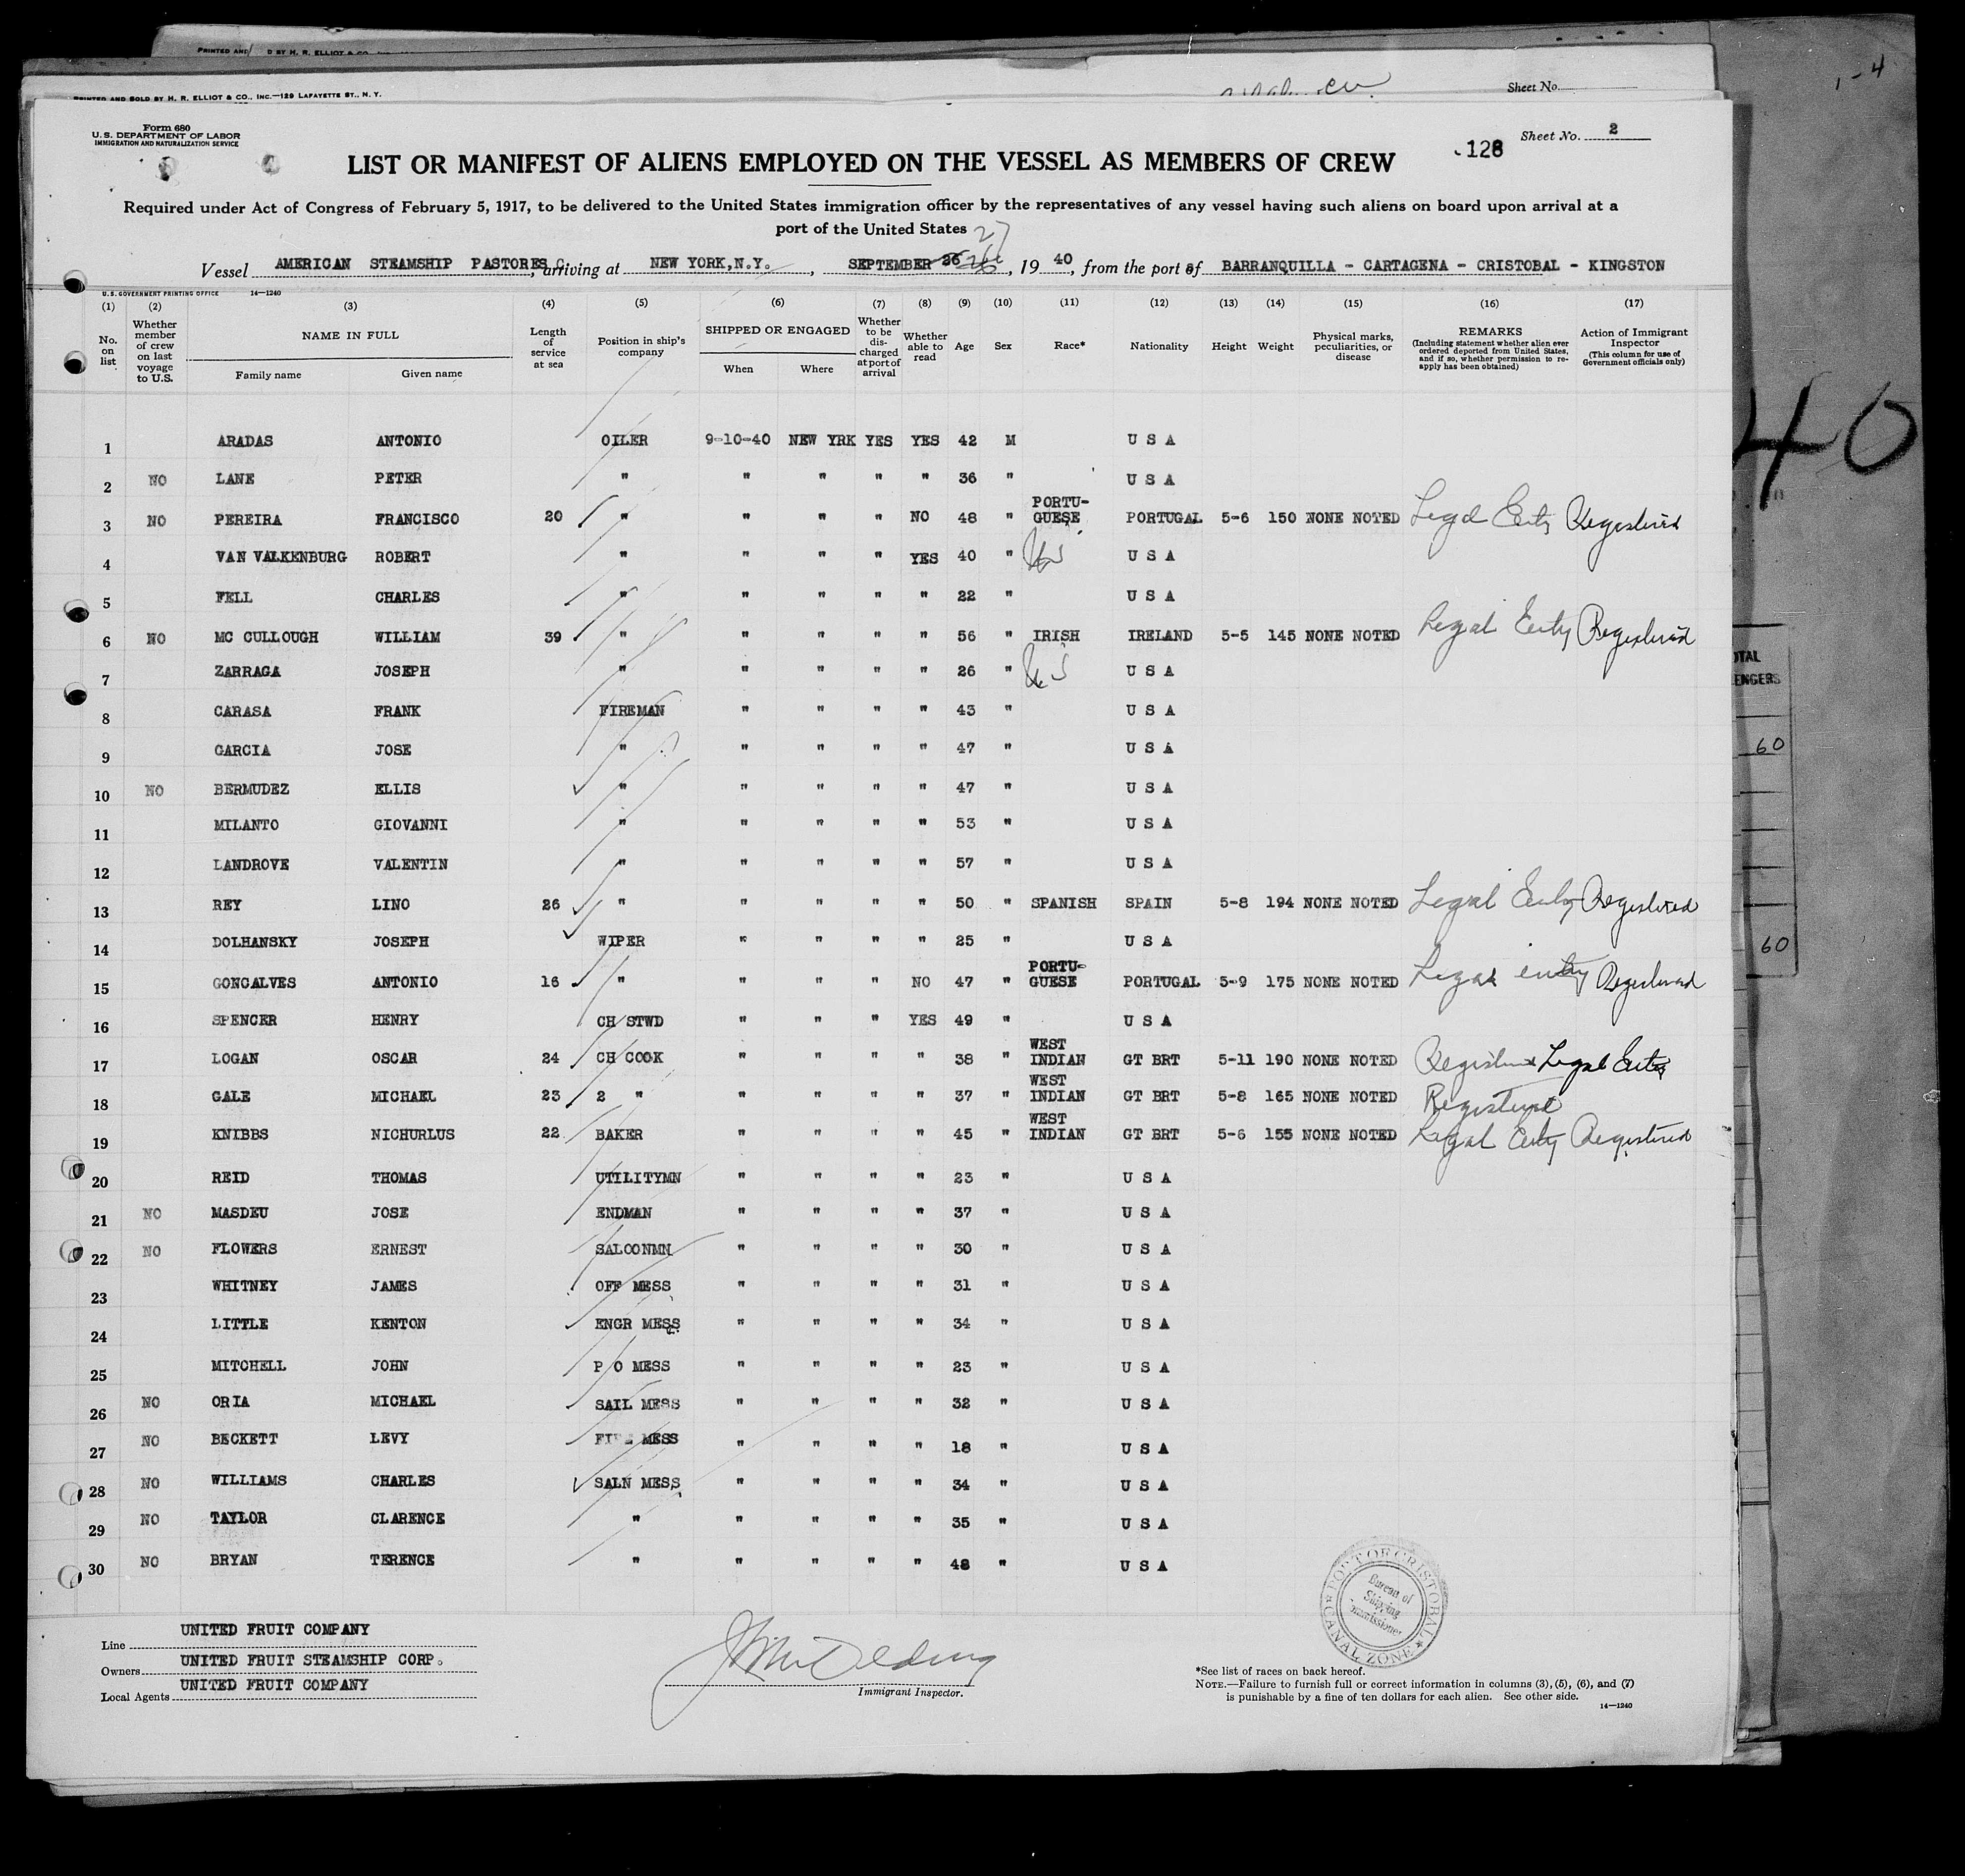 PRINTED AND D BY H. R. ELLIOT & CO., INC.
PRINTED AND SOLD BY H. R. ELLIOT & CO., INC.—129 LAFAYETTE ST., N. Y.
Sheet No.
Form 680
U. S. DEPARTMENT OF LABOR
IMMIGRATION AND NATURALIZATION SERVICE
Sheet No. 2
128
LIST OR MANIFEST OF ALIENS EMPLOYED ON THE VESSEL AS MEMBERS OF CREW
Required under Act of Congress of February 5, 1917, to be delivered to the United States immigration officer by the representatives of any vessel having such aliens on board upon arrival at a
port of the United States
27
Vessel AMERICAN STEAMSHIP PASTORES, arriving at NEW YORK,N.Y., SEPTEMBER 26, 1940, from the port of BARRANQUILLA - CARTAGENA - CRISTOBAL - KINGSTON
U. S. GOVERNMENT PRINTING OFFICE 14—1240
(1) (2) (3) (4) (5) (6) (7) (8) (9) (10) (11) (12) (13) (14) (15) (16) (17)
No. on list
Whether member of crew on last voyage to U.S.
NAME IN FULL
Family name Given name
Length of service at sea
Position in ship's company
SHIPPED OR ENGAGED
When Where
Whether to be discharged at port of arrival
Whether able to read
Age
Sex
Race*
Nationality
Height
Weight
Physical marks, peculiarities, or disease
REMARKS
(Including statement whether alien ever ordered deported from United States, and if so, whether permission to reapply has been obtained)
Action of Immigrant Inspector
(This column for use of Government officials only)
1 ARADAS ANTONIO OILER 9-10-40 NEW YRK YES YES 42 M U S A
2 NO LANE PETER " " " " " 36 " U S A
3 NO PEREIRA FRANCISCO 20 " " " " NO 48 " PORTU-GUESE PORTUGAL 5-6 150 NONE NOTED Legal Entry Registered
4 VAN VALKENBURG ROBERT " " " " YES 40 " US U S A
5 FELL CHARLES " " " " " 22 " U S A
6 NO MC CULLOUGH WILLIAM 39 " " " " " 56 " IRISH IRELAND 5-5 145 NONE NOTED Legal Entry Registered
7 ZARRAGA JOSEPH " " " " " 26 " US U S A
8 CARASA FRANK FIREMAN " " " " 43 " U S A
9 GARCIA JOSE " " " " " 47 " U S A
10 NO BERMUDEZ ELLIS " " " " " 47 " U S A
11 MILANTO GIOVANNI " " " " " 53 " U S A
12 LANDROVE VALENTIN " " " " " 57 " U S A
13 REY LINO 26 " " " " " 50 " SPANISH SPAIN 5-8 194 NONE NOTED Legal Entry Registered
14 DOLHANSKY JOSEPH WIPER " " " " 25 " U S A
15 GONCALVES ANTONIO 16 " " " " NO 47 " PORTU-GUESE PORTUGAL 5-9 175 NONE NOTED Legal entry Registered
16 SPENCER HENRY CH STWD " " " YES 49 " U S A
17 LOGAN OSCAR 24 CH COOK " " " " 38 " WEST INDIAN GT BRT 5-11 190 NONE NOTED Registered Legal Entry
18 GALE MICHAEL 23 2 " " " " " 37 " WEST INDIAN GT BRT 5-8 165 NONE NOTED Registered
19 KNIBBS NICHURLUS 22 BAKER " " " " 45 " WEST INDIAN GT BRT 5-6 155 NONE NOTED Legal Entry Registered
20 REID THOMAS UTILITYMN " " " " 23 " U S A
21 NO MASDEU JOSE ENDMAN " " " " 37 " U S A
22 NO FLOWERS ERNEST SALOONMN " " " " 30 " U S A
23 WHITNEY JAMES OFF MESS " " " " 31 " U S A
24 LITTLE KENTON ENGR MESS " " " " 34 " U S A
25 MITCHELL JOHN P O MESS " " " " 23 " U S A
26 NO ORIA MICHAEL SAIL MESS " " " " 32 " U S A
27 NO BECKETT LEVY MESS " " " " 18 " U S A
28 NO WILLIAMS CHARLES SALN MESS " " " " 34 " U S A
29 NO TAYLOR CLARENCE " " " " " 35 " U S A
30 NO BRYAN TERENCE " " " " " 48 " U S A
Line UNITED FRUIT COMPANY
Owners UNITED FRUIT STEAMSHIP CORP.
Local Agents UNITED FRUIT COMPANY
Immigrant Inspector.
PORT OF CRISTOBAL
CANAL ZONE
Bureau of
Shipping
Commissioner
*See list of races on back hereof.
NOTE.—Failure to furnish full or correct information in columns (3), (5), (6), and (7)
is punishable by a fine of ten dollars for each alien. See other side.
14—1240
1-4
40
60
60